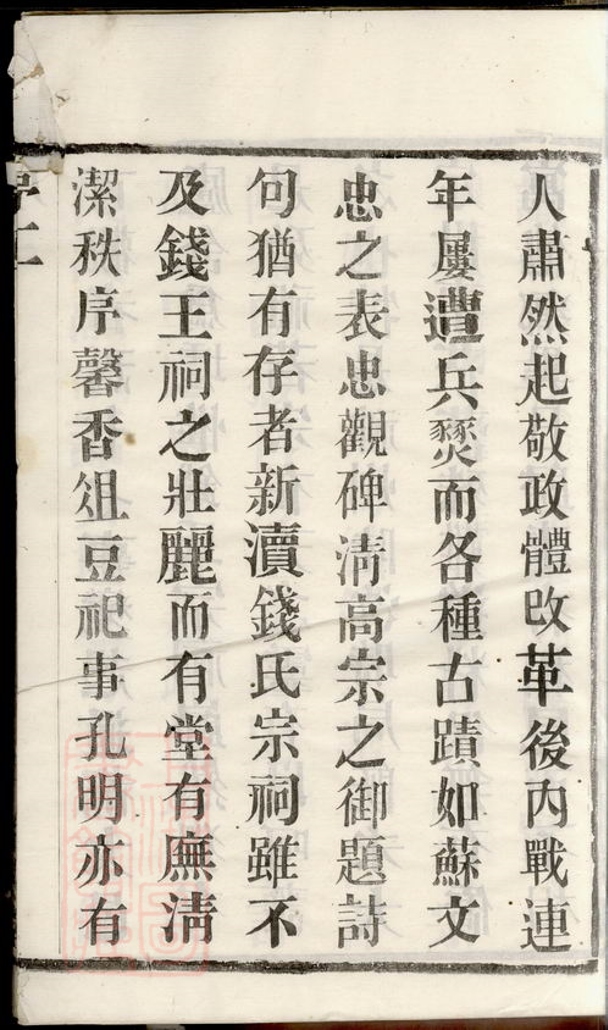 人肅然起敬政體改革後內戰連
年屢遭兵燹而各種古蹟如蘇文
忠之表忠觀碑淸高宗之御題詩
句猶有存者新瀆錢氏宗祠雖不
及錢王祠之壯麗而有堂有廡淸
潔秩序馨香俎豆祀事孔明亦有